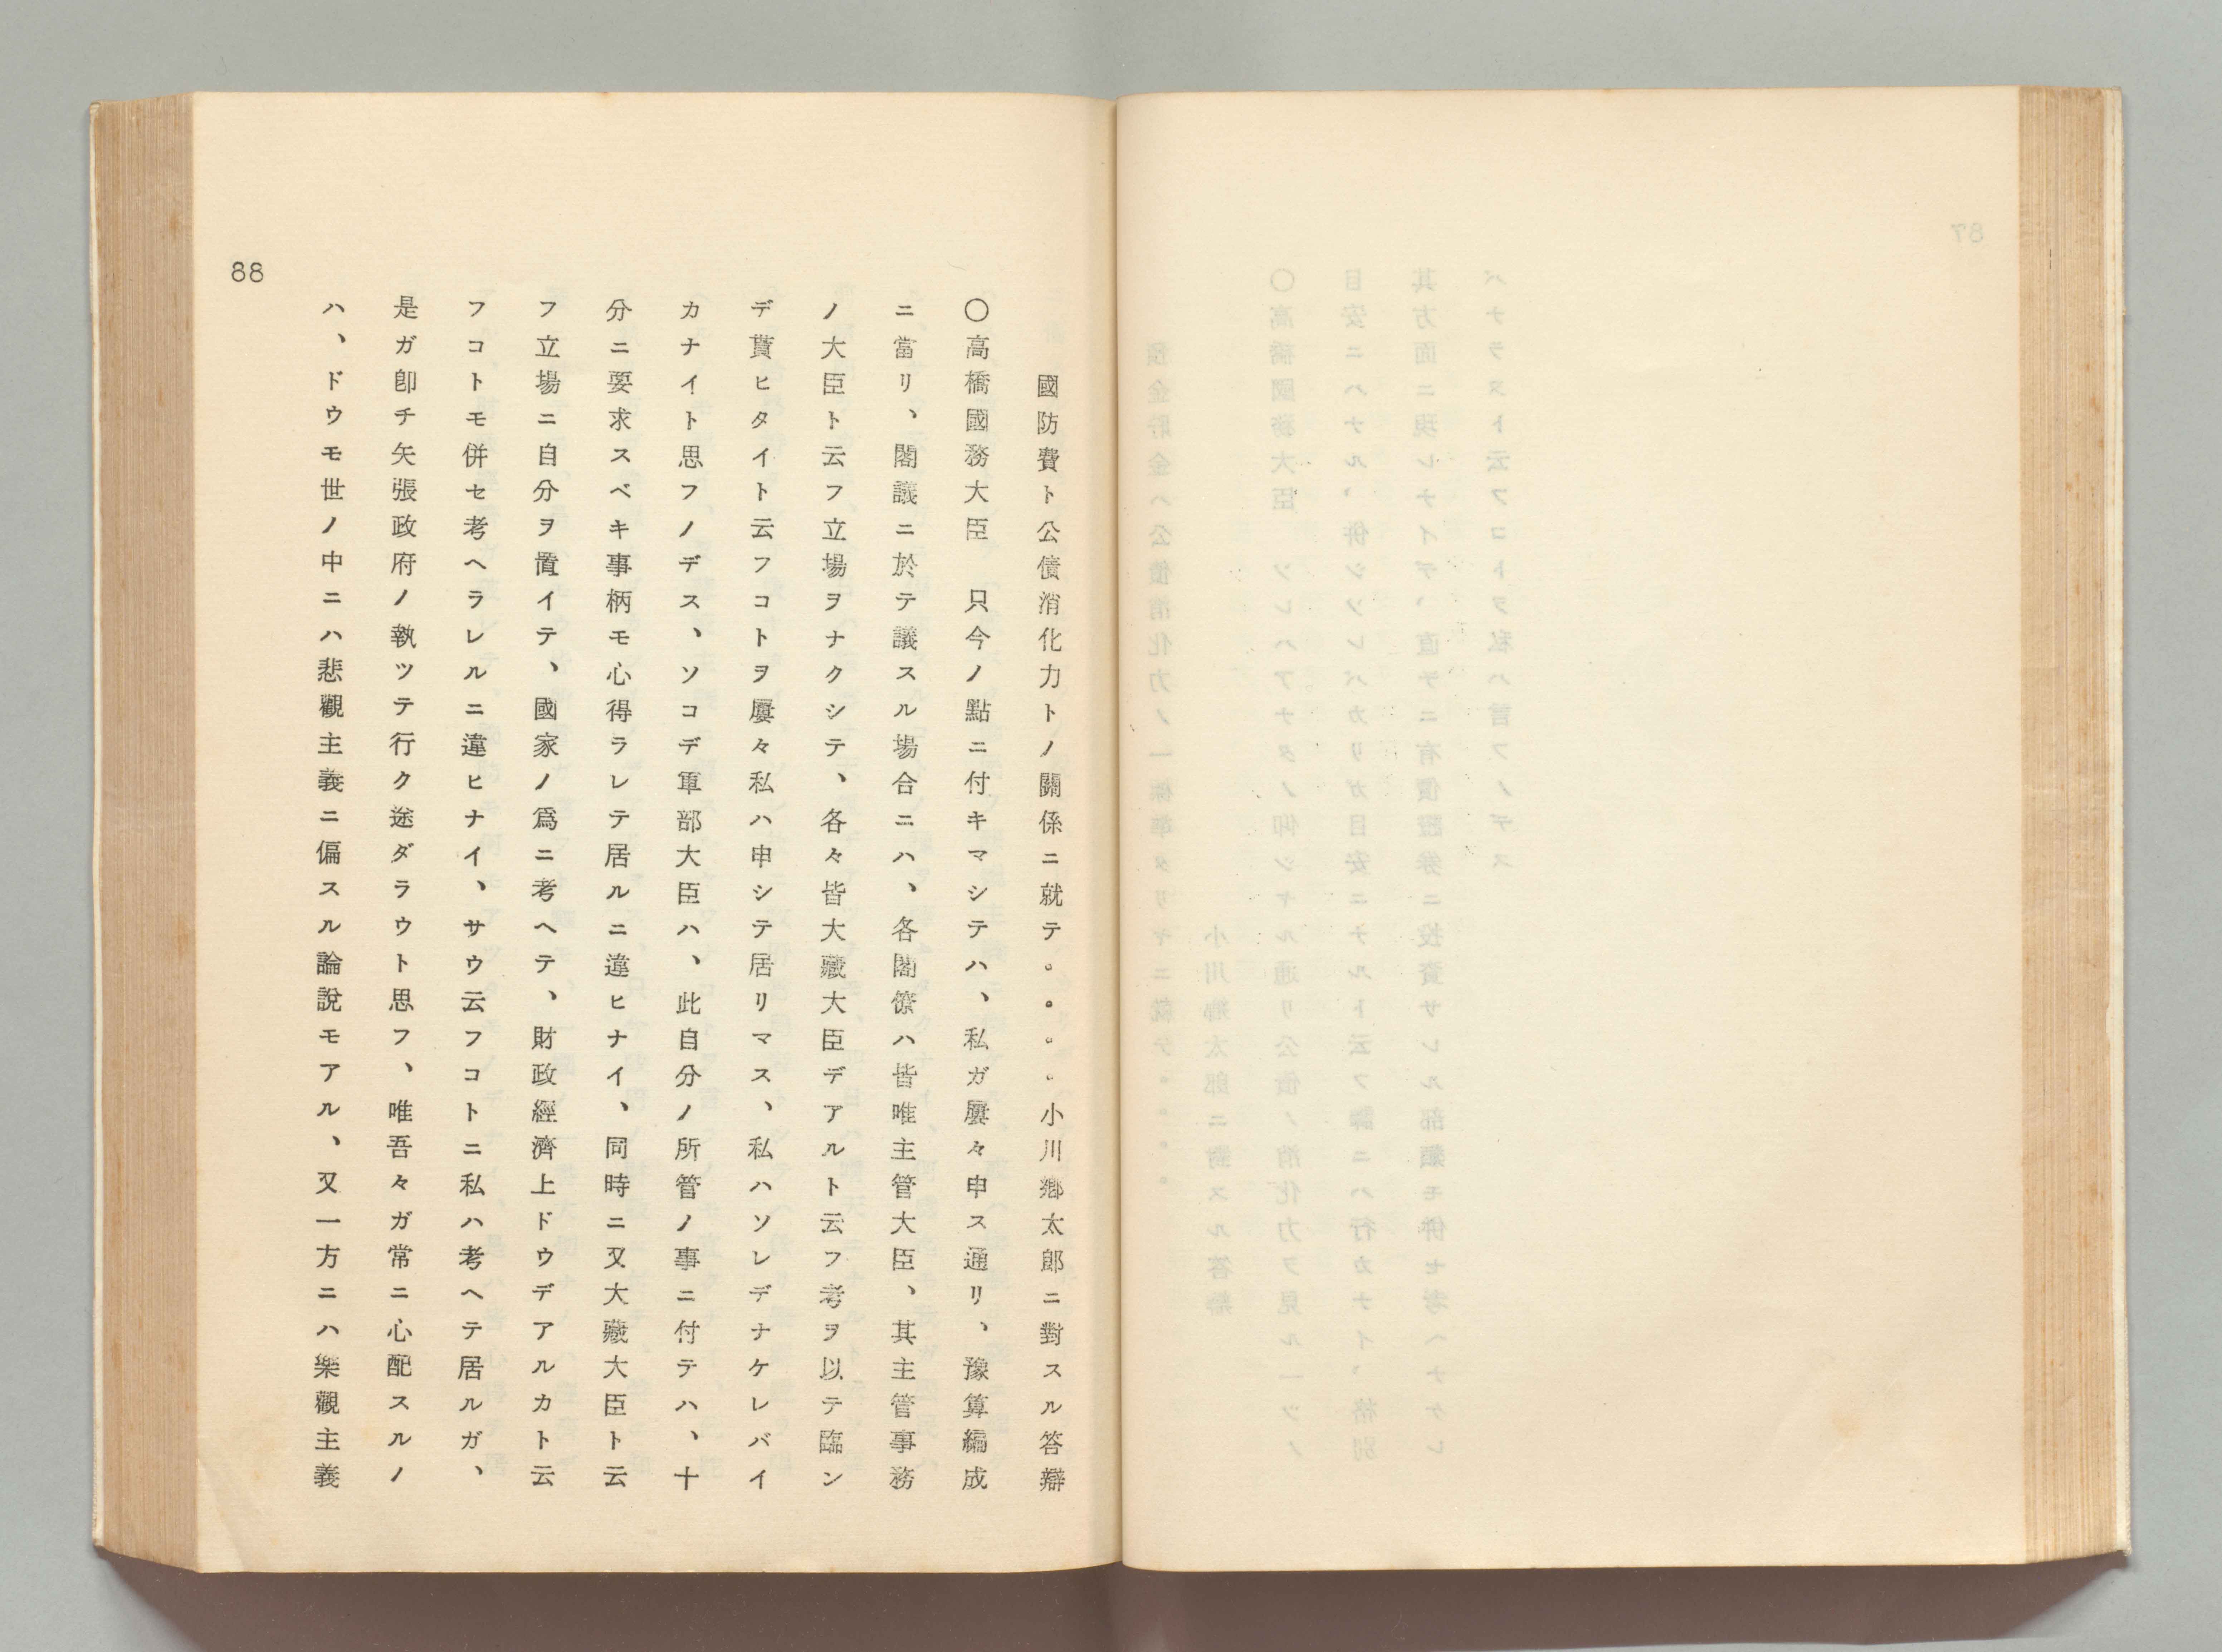 國防費ト公債消化力トノ關係ニ就テ。。。。小川郷太郎ニ對スル答辯
〇高橋國務大臣　只今ノ點ニ付キマシテハ、私ガ屢々申ス通リ、豫算編成
ニ當リ、閣議ニ於テ議スル場合ニハ、各閣僚ハ皆唯主管大臣、其主管事務
ノ大臣ト云フ立場ヲナクシテ、各々皆大藏大臣デアルト云フ考ヲ以テ臨ン
デ貰ヒタイト云フコトヲ屢々私ハ申シテ居リマス、私ハソレデナケレバイ
カナイト思フノデス、ソコデ軍部大臣ハ、此自分ノ所管ノ事ニ付テハ、十
分ニ要求スベキ事柄モ心得ラレテ居ルニ違ヒナイ、同時ニ又大藏大臣ト云
フ立場ニ自分ヲ置イテ、國家ノ爲ニ考ヘテ、財政經濟上ドウデアルカト云
フコトモ併セ考ヘラレルニ違ヒナイ、サウ云フコトニ私ハ考ヘテ居ルガ、
是ガ卽チ矢張政府ノ執ツテ行ク途ダラウト思フ、唯吾々ガ常ニ心配スルノ
ハ、ドウモ世ノ中ニハ悲觀主義ニ偏スル論說モアル、又一方ニハ樂觀主義
88